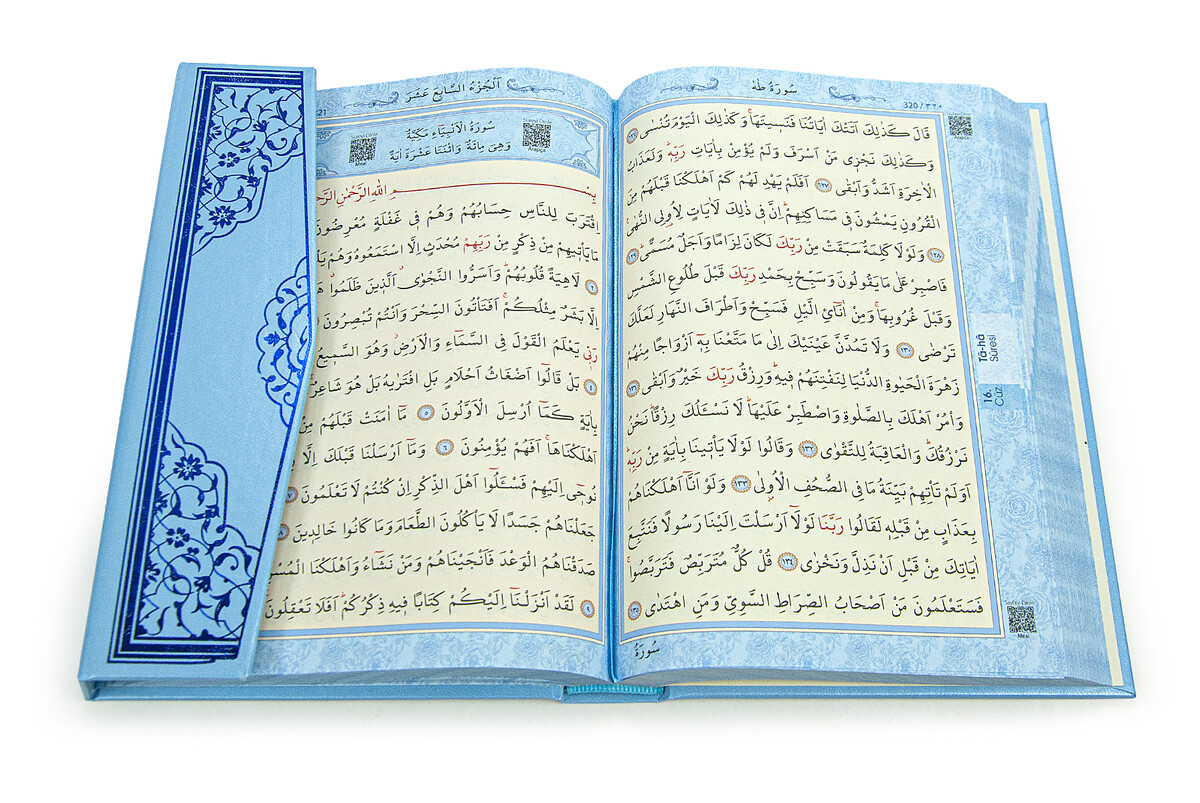 سُورَةُ طٰهٰ
320 / ٣٢٠
قَالَ كَذٰلِكَ اَتَتْكَ اٰيَاتُنَا فَنَسٖيتَهَاۚ وَكَذٰلِكَ الْيَوْمَ تُنْسٰى ﴿١٢٦﴾
وَكَذٰلِكَ نَجْزٖى مَنْ اَسْرَفَ وَلَمْ يُؤْمِنْ بِاٰيَاتِ رَبِّهٖؕ وَلَعَذَابُ
الْاٰخِرَةِ اَشَدُّ وَاَبْقٰى ﴿١٢٧﴾ اَفَلَمْ يَهْدِ لَهُمْ كَمْ اَهْلَكْنَا قَبْلَهُمْ مِنَ
الْقُرُونِ يَمْشُونَ فٖى مَسَاكِنِهِمْؕ اِنَّ فٖى ذٰلِكَ لَاٰيَاتٍ لِاُولِى النُّهٰى
﴿١٢٨﴾ وَلَوْلَا كَلِمَةٌ سَبَقَتْ مِنْ رَبِّكَ لَكَانَ لِزَامًا وَاَجَلٌ مُسَمًّىؕ ﴿١٢٩﴾
فَاصْبِرْ عَلٰى مَا يَقُولُونَ وَسَبِّحْ بِحَمْدِ رَبِّكَ قَبْلَ طُلُوعِ الشَّمْسِ
وَقَبْلَ غُرُوبِهَاۚ وَمِنْ اٰنَٓائِ الَّيْلِ فَسَبِّحْ وَاَطْرَافَ النَّهَارِ لَعَلَّكَ
تَرْضٰى ﴿١٣٠﴾ وَلَا تَمُدَّنَّ عَيْنَيْكَ اِلٰى مَا مَتَّعْنَا بِهٖٓ اَزْوَاجًا مِنْهُمْ
زَهْرَةَ الْحَيٰوةِ الدُّنْيَا لِنَفْتِنَهُمْ فٖيهِؕ وَرِزْقُ رَبِّكَ خَيْرٌ وَاَبْقٰى ﴿١٣١﴾
وَأْمُرْ اَهْلَكَ بِالصَّلٰوةِ وَاصْطَبِرْ عَلَيْهَاؕ لَا نَسْـَٔلُكَ رِزْقًاؕ نَحْنُ
نَرْزُقُكَؕ وَالْعَاقِبَةُ لِلتَّقْوٰى ﴿١٣٢﴾ وَقَالُوا لَوْلَا يَأْتٖينَا بِاٰيَةٍ مِنْ رَبِّهٖؕ
اَوَلَمْ تَأْتِهِمْ بَيِّنَةُ مَا فِى الصُّحُفِ الْاُولٰى ﴿١٣٣﴾ وَلَوْ اَنَّٓا اَهْلَكْنَاهُمْ
بِعَذَابٍ مِنْ قَبْلِهٖ لَقَالُوا رَبَّنَا لَوْلَٓا اَرْسَلْتَ اِلَيْنَا رَسُولًا فَنَتَّبِعَ
اٰيَاتِكَ مِنْ قَبْلِ اَنْ نَذِلَّ وَنَخْزٰى ﴿١٣٤﴾ قُلْ كُلٌّ مُتَرَبِّصٌ فَتَرَبَّصُواۚ
فَسَتَعْلَمُونَ مَنْ اَصْحَابُ الصِّرَاطِ السَّوِىِّ وَمَنِ اهْتَدٰى ﴿١٣٥﴾
سُورَةُ
Tâ-hâ
Sûresi
16.
Cüz
Meal
اَلْجُزْءُ السَّابِعَ عَشَرَ
21
سُورَةُ الْاَنْبِيَاءِ مَكِّيَّةٌ
وَهِىَ مِائَةٌ وَاثْنَتَا عَشْرَةَ اٰيَةً
Arapça
Meal
بِسْمِ اللّٰهِ الرَّحْمٰنِ
اِقْتَرَبَ لِلنَّاسِ حِسَابُهُمْ وَهُمْ فٖى غَفْلَةٍ مُعْرِضُونَ
مَا يَأْتٖيهِمْ مِنْ ذِكْرٍ مِنْ رَبِّهِمْ مُحْدَثٍ اِلَّا اسْتَمَعُوهُ وَهُمْ
﴿٢﴾ لَاهِيَةً قُلُوبُهُمْؕ وَاَسَرُّوا النَّجْوٰىۗ اَلَّذٖينَ ظَلَمُواۗ
اِلَّا بَشَرٌ مِثْلُكُمْۚ اَفَتَأْتُونَ السِّحْرَ وَاَنْتُمْ تُبْصِرُونَ
رَبّٖى يَعْلَمُ الْقَوْلَ فِى السَّمَٓاءِ وَالْاَرْضِؗ وَهُوَ السَّمٖيعُ
﴿٤﴾ بَلْ قَالُٓوا اَضْغَاثُ اَحْلَامٍ بَلِ افْتَرٰيهُ بَلْ هُوَ شَاعِرٌۚ
بِاٰيَةٍ كَمَٓا اُرْسِلَ الْاَوَّلُونَ ﴿٥﴾ مَٓا اٰمَنَتْ قَبْلَهُمْ مِنْ
اَهْلَكْنَاهَاۚ اَفَهُمْ يُؤْمِنُونَ ﴿٦﴾ وَمَٓا اَرْسَلْنَا قَبْلَكَ اِلَّا
نُوحٖٓى اِلَيْهِمْ فَسْـَٔلُٓوا اَهْلَ الذِّكْرِ اِنْ كُنْتُمْ لَا تَعْلَمُونَ ﴿٧﴾
جَعَلْنَاهُمْ جَسَدًا لَا يَأْكُلُونَ الطَّعَامَ وَمَا كَانُوا خَالِدٖينَ ﴿٨﴾
صَدَقْنَاهُمُ الْوَعْدَ فَاَنْجَيْنَاهُمْ وَمَنْ نَشَٓاءُ وَاَهْلَكْنَا
لَقَدْ اَنْزَلْنَٓا اِلَيْكُمْ كِتَابًا فٖيهِ ذِكْرُكُمْؕ اَفَلَا تَعْقِلُونَ ﴿٩﴾